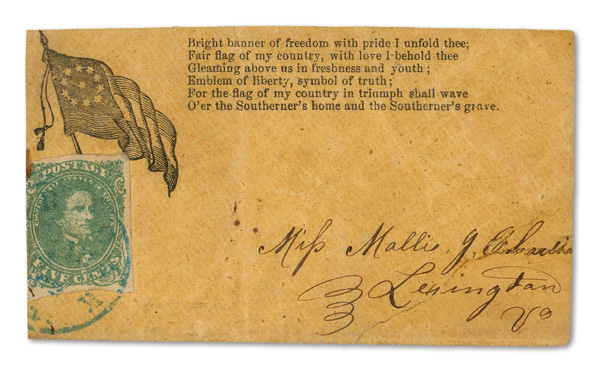 Bright banner of freedom with pride I unfold thee;
Fair flag of my country, with love I behold thee
Gleaming above us in freshness and youth;
Emblem of liberty, symbol of truth;
For the flag of my country in triumph shall wave
O'er the Southerner's home and the Southerner's grave.
POSTAGE
FIVE CENTS
Miss Mollie J.
Lexington
Va